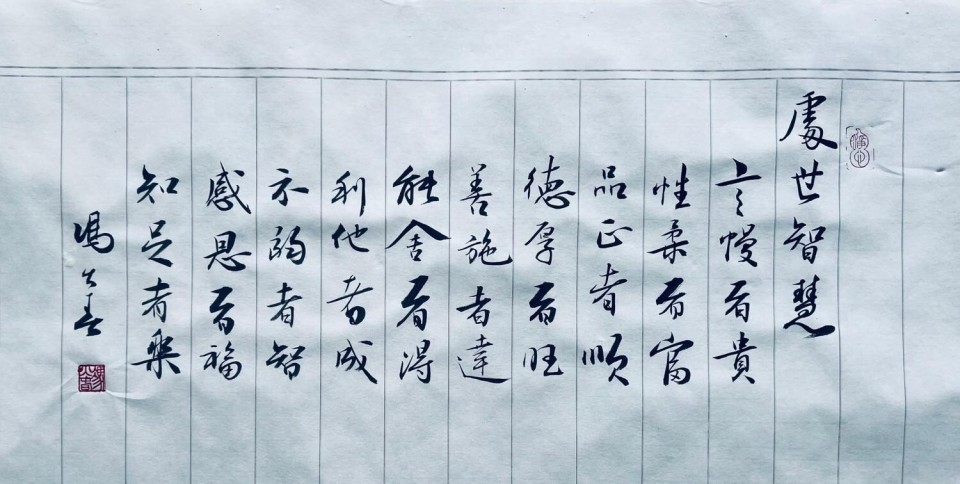 處世智慧
言慢者貴
性柔者富
品正者順
德厚者旺
善施者達
能舍者得
利他者成
示弱者智
感恩者福
知足者樂
馮公